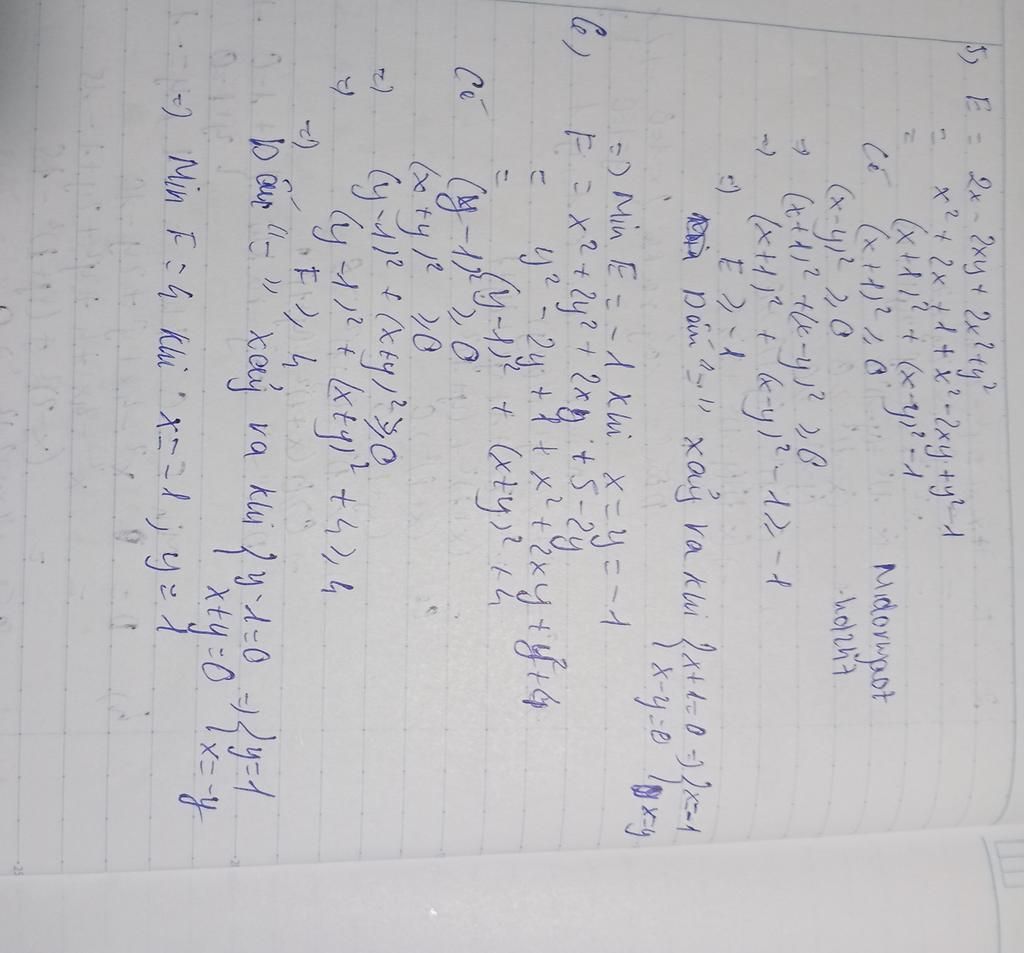 5, E = 2x - 2xy + 2x² + y²
= x² + 2x + 1 + x² - 2xy + y² - 1
= (x+1)² + (x-y)² - 1
Có (x+1)² ≥ 0
(x-y)² ≥ 0
=> (x+1)² + (x-y)² ≥ 0
=> (x+1)² + (x-y)² - 1 ≥ -1
=> E ≥ -1
Dấu "=" xảy ra khi { x+1=0 => { x=-1
{ x-y=0 { x=y
=> Min E = -1 khi x=y=-1
6, F = x² + 2y² + 2xy + 5 - 2y
= y² - 2y + 1 + x² + 2xy + y² + 4
= (y-1)² + (x+y)² + 4
Có (y-1)² ≥ 0
(x+y)² ≥ 0
=> (y-1)² + (x+y)² ≥ 0
=> (y-1)² + (x+y)² + 4 ≥ 4
=> F ≥ 4
Dấu "=" xảy ra khi { y-1=0 => { y=1
{ x+y=0 { x=-y
=> Min F = 4 khi x=-1, y=1